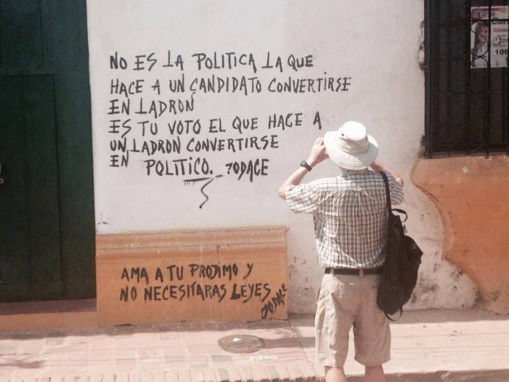 NO ES LA POLITICA LA QUE
HACE A UN CANDIDATO CONVERTIRSE
EN LADRON
ES TU VOTO EL QUE HACE A
UN LADRON CONVERTIRSE
EN POLITICO. JODAGE
AMA A TU PROJIMO Y
NO NECESITARAS LEYES
JODAGE